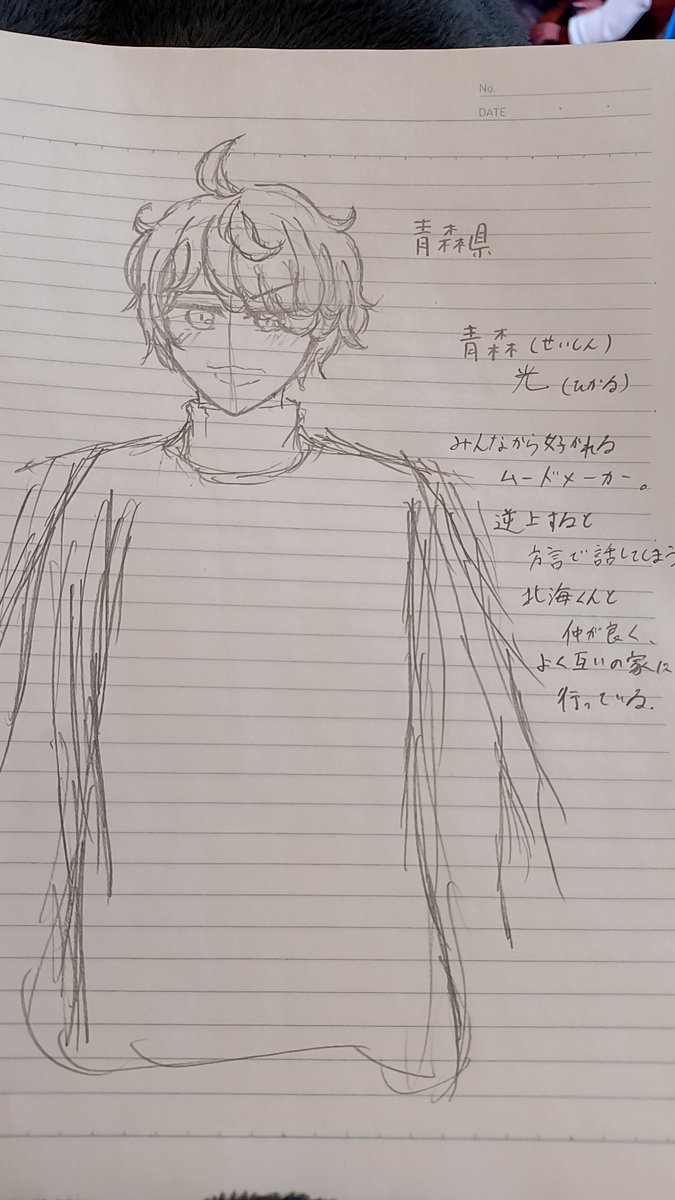 No.
DATE
青森県
青森(せいしん)
光(ひかる)
みんなから好かれる
ムードメーカー。
逆上すると
方言で話してしまう
北海くんと
仲が良く、
よく互いの家に
行っている.